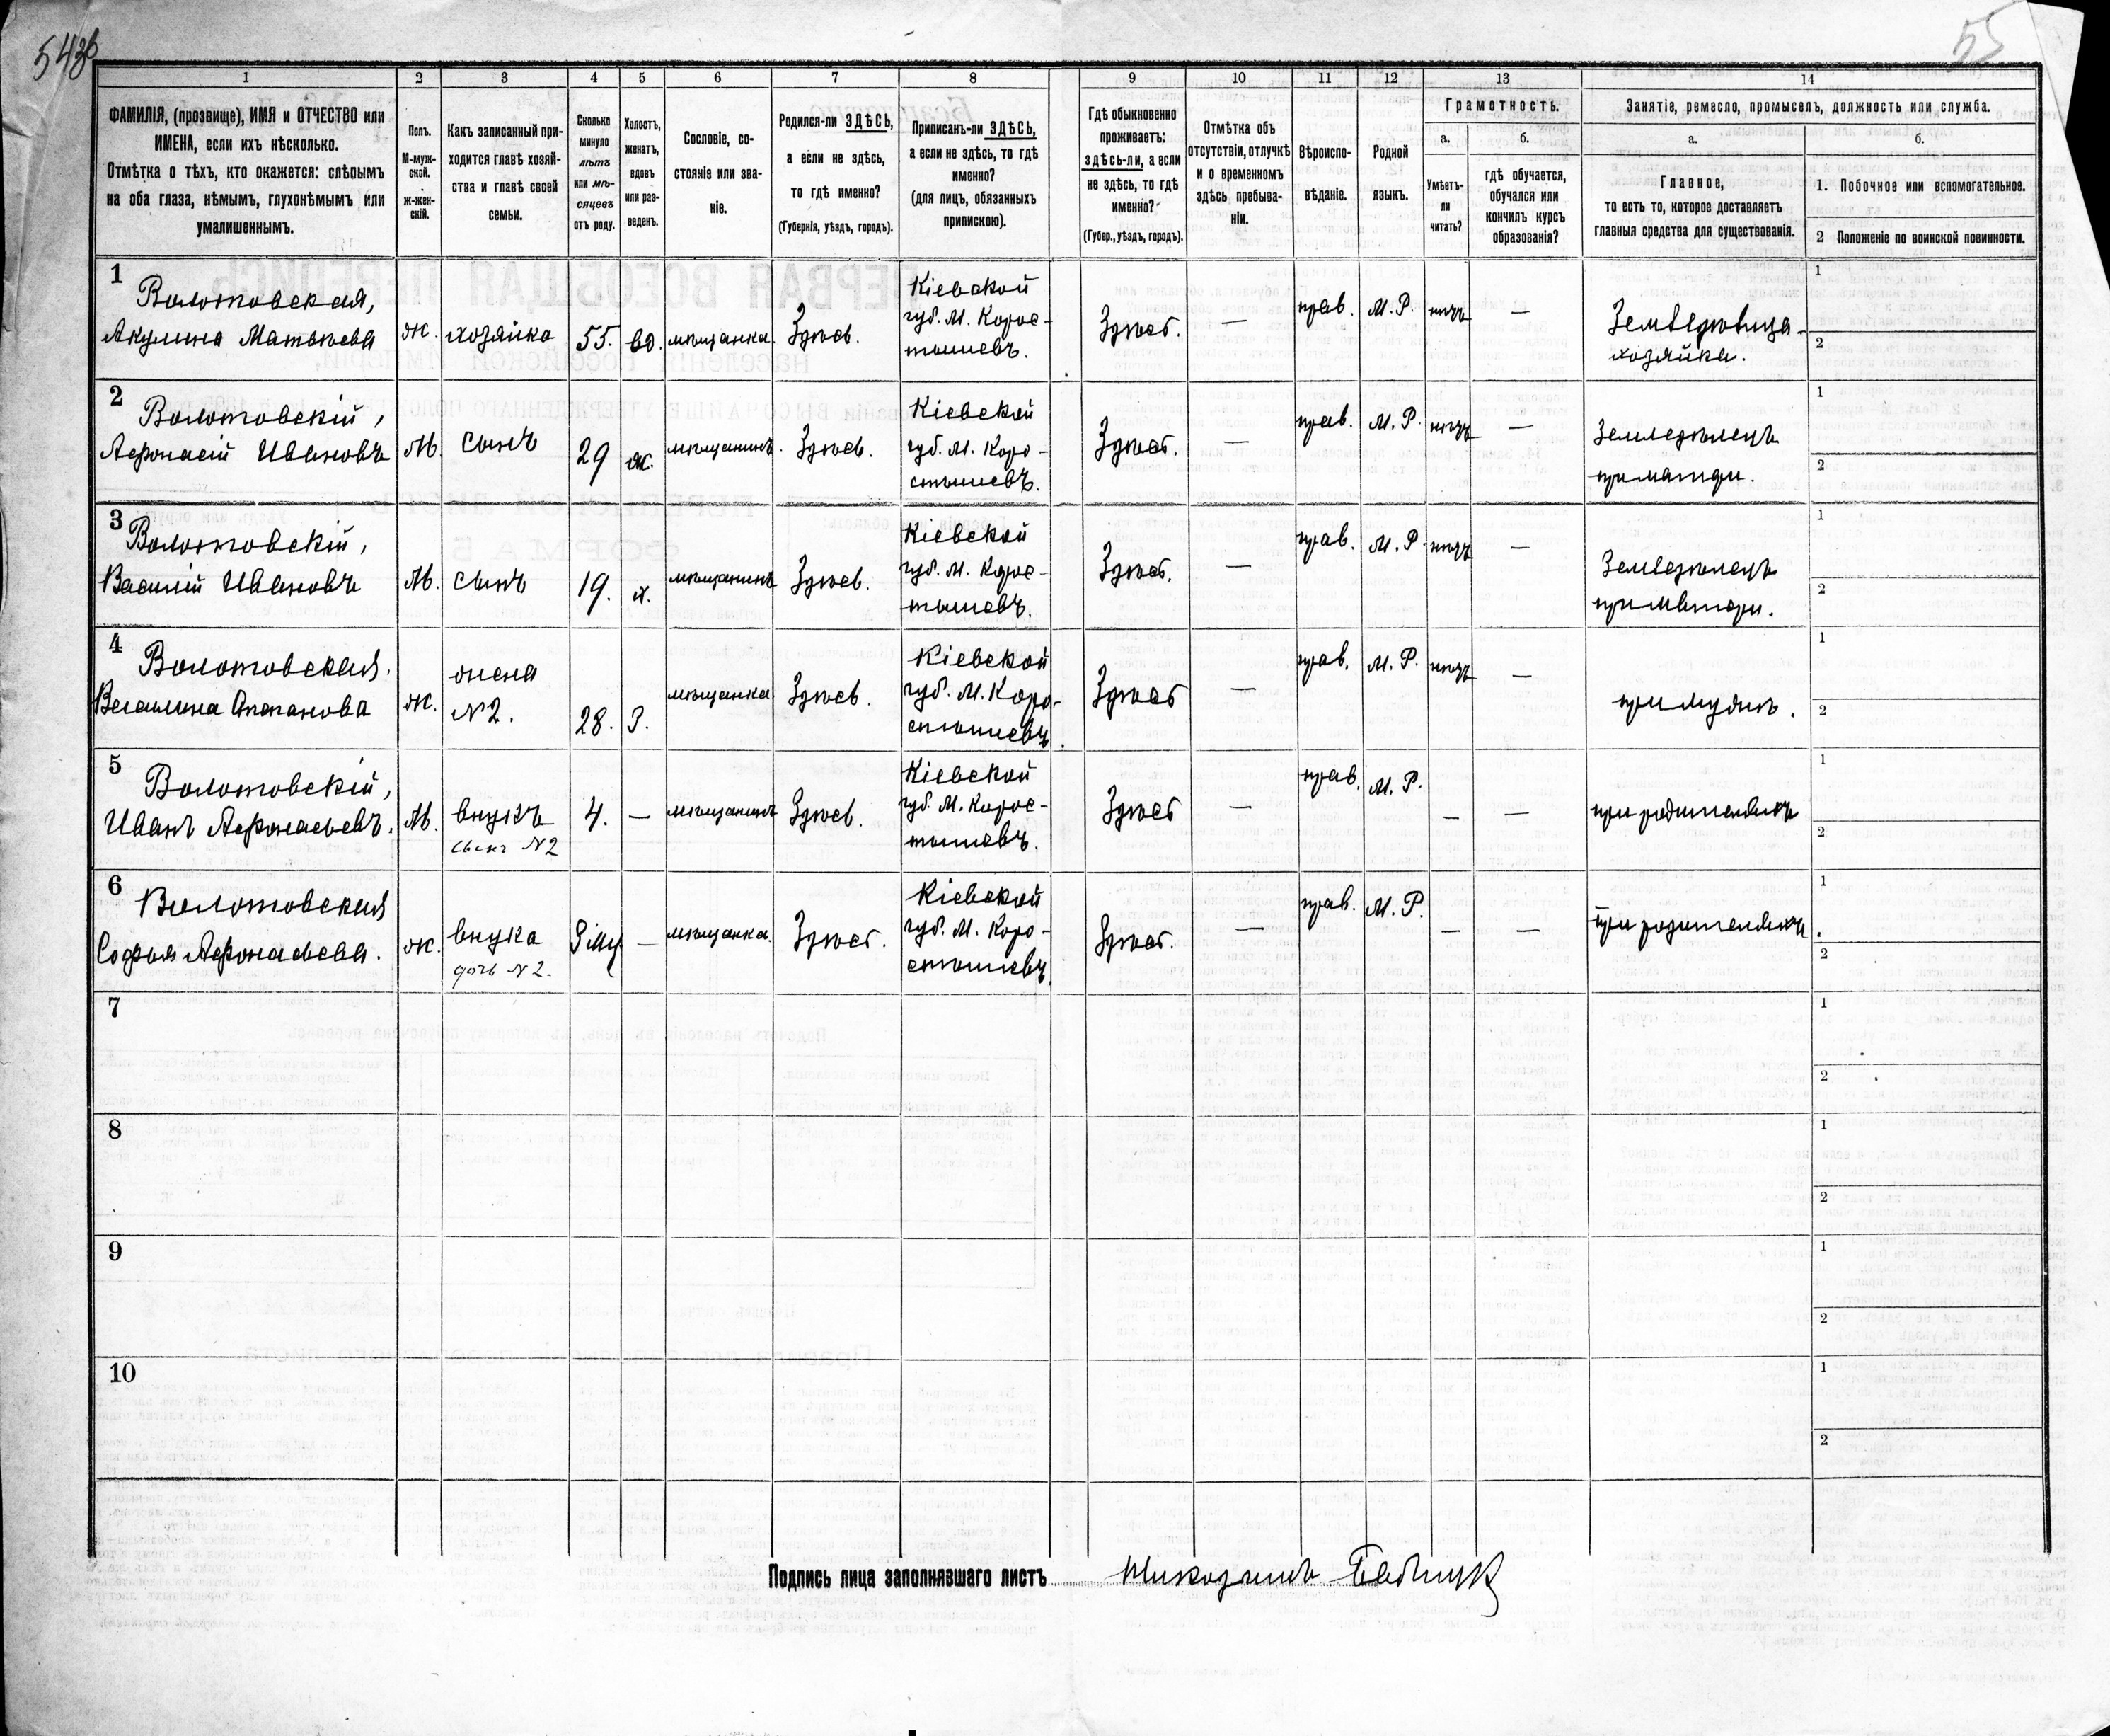 54зв
55
1 2 3 4 5 6 7 8 9 10 11 12 13 14
ФАМИЛІЯ, (прозвище), ИМЯ и ОТЧЕСТВО или
ИМЕНА, если ихъ нѣсколько.
Отмѣтка о тѣхъ, кто окажется: слѣпымъ
на оба глаза, нѣмымъ, глухонѣмымъ или
умалишеннымъ.
Полъ.
М-муж-
ской.
ж-жен-
скій.
Какъ записанный при-
ходится главѣ хозяй-
ства и главѣ своей
семьи.
Сколько
минуло
лѣтъ
или мѣ-
сяцевъ
отъ роду.
Холостъ,
женатъ,
вдовъ
или раз-
веденъ.
Сословіе, со-
стояніе или зва-
ніе.
Родился-ли ЗДѢСЬ,
а если не здѣсь,
то гдѣ именно?
(Губернія, уѣздъ, городъ).
Приписанъ-ли ЗДѢСЬ,
а если не здѣсь, то гдѣ
именно?
(для лицъ, обязанныхъ
припискою).
Гдѣ обыкновенно
проживаетъ:
здѣсь-ли, а если
не здѣсь, то гдѣ
именно?
(Губер., уѣздъ, городъ).
Отмѣтка объ
отсутствіи, отлучкѣ
и о временномъ
здѣсь пребыва-
ніи.
Вѣроиспо-
вѣданіе.
Родной
языкъ.
Грамотность.
а.
Умѣетъ-
ли
читать?
б.
гдѣ обучается,
обучался или
кончилъ курсъ
образованія?
Занятіе, ремесло, промыселъ, должность или служба.
а.
Главное,
то есть то, которое доставляетъ
главныя средства для существованія.
б.
1. Побочное или вспомогательное.
2 Положеніе по воинской повинности.
1
Волотовская,
Акулина Матвѣева
ж.
хозяйка
55.
вд.
мѣщанка
Здѣсь.
Кіевской
губ. М. Корос-
тышевъ.
Здѣсь.
—
прав.
М. Р.
нѣтъ
—
Земледѣлица-
хозяйка.
1
2
2
Волотовскій,
Афонасій Ивановъ
М.
сынъ
29
ж.
мѣщанинъ.
Здѣсь.
Кіевской
губ. М. Коро-
стышевъ.
Здѣсь.
—
прав.
М. Р.
нѣтъ
—
Земледѣлецъ
при матери.
1
2
3
Волотовскій,
Василій Ивановъ
М.
сынъ
19.
х.
мѣщанинъ
Здѣсь.
Кіевской
губ. М. Корос-
тышевъ.
Здѣсь.
—
прав.
М. Р.
нѣтъ
—
Земледѣлецъ
при матери.
1
2
4
Волотовская.
Степанова
ж.
жена
№2.
28.
З.
мѣщанка
Здѣсь.
Кіевской
губ. М. Коро-
стышевъ.
Здѣсь
—
прав.
М. Р.
нѣтъ
—
при мужѣ.
1
2
5
Волотовскій,
Иванъ Афонасьевъ.
М.
внукъ
сынъ №2
4.
—
мѣщанинъ
Здѣсь.
Кіевской
губ. М. Корос-
тышевъ.
Здѣсь
—
прав.
М. Р.
—
—
при родителяхъ
1
2
6
Волотовская
Софья Афонасьева.
ж.
внука
дочь №2.
—
мѣщанка.
Здѣсь.
Кіевской
губ. М. Коро-
стышевъ.
Здѣсь.
—
прав.
М. Р.
—
—
при родителяхъ.
1
2
7
1
2
8
1
2
9
1
2
10
1
2
Подпись лица заполнявшаго листъ